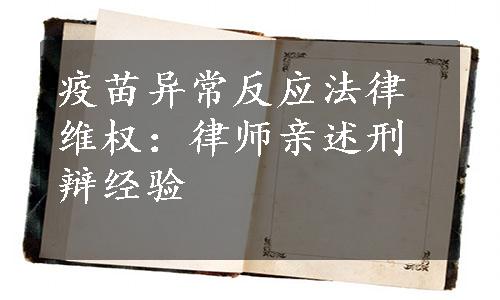 疫苗异常反应法律
维权：律师亲述刑
辩经验